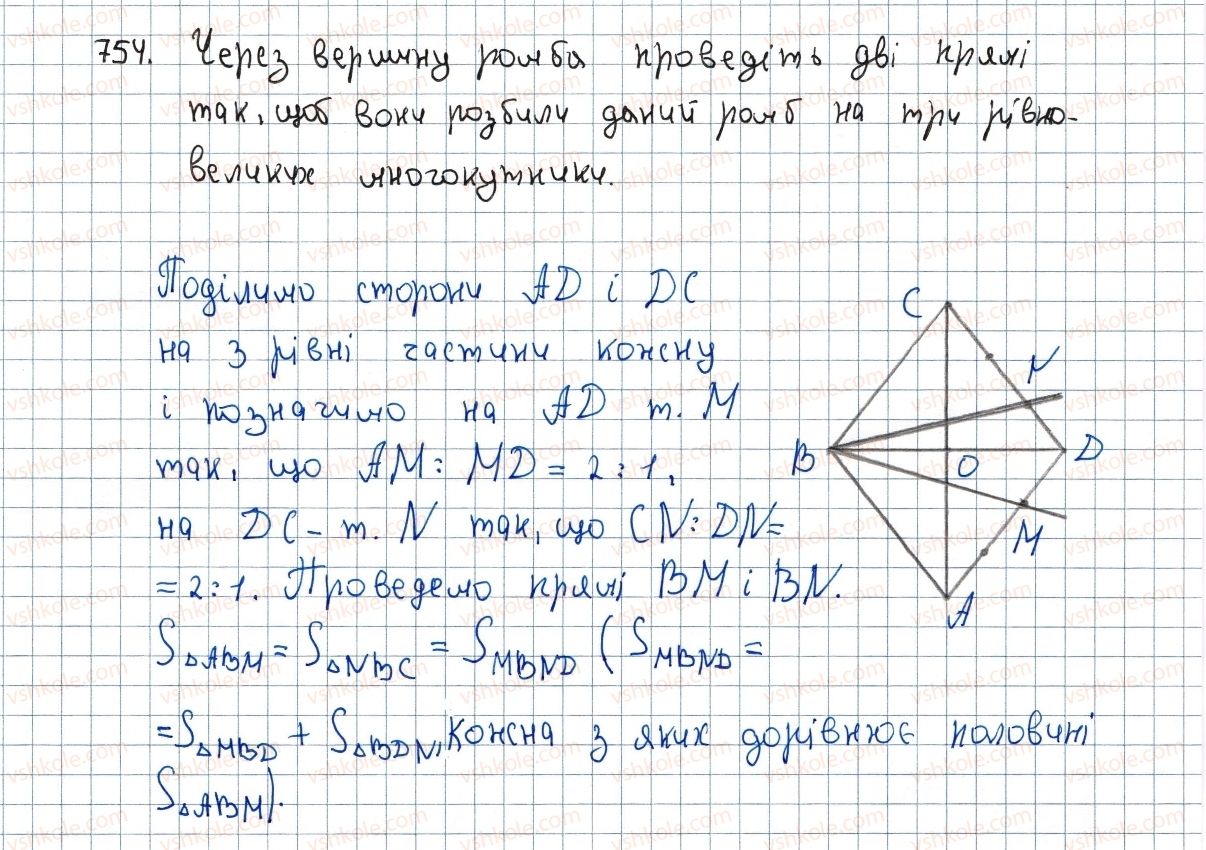 754. Через вершину ромба проведіть дві прямі
так, щоб вони розбили даний ромб на три рівно-
великих многокутники.
Поділимо сторони AD і DC
на 3 рівні частини кожну
і позначимо на AD т. M
так, що AM : MD = 2 : 1,
на DC - т. N так, що CN : DN =
= 2 : 1. Проведемо прямі BM і BN.
S△ABM = S△NBC = SMBND (SMBND =
= S△MBD + S△BDN, кожна з яких дорівнює половині
S△ABM).
C
N
B
O
D
M
A
vshkole.com